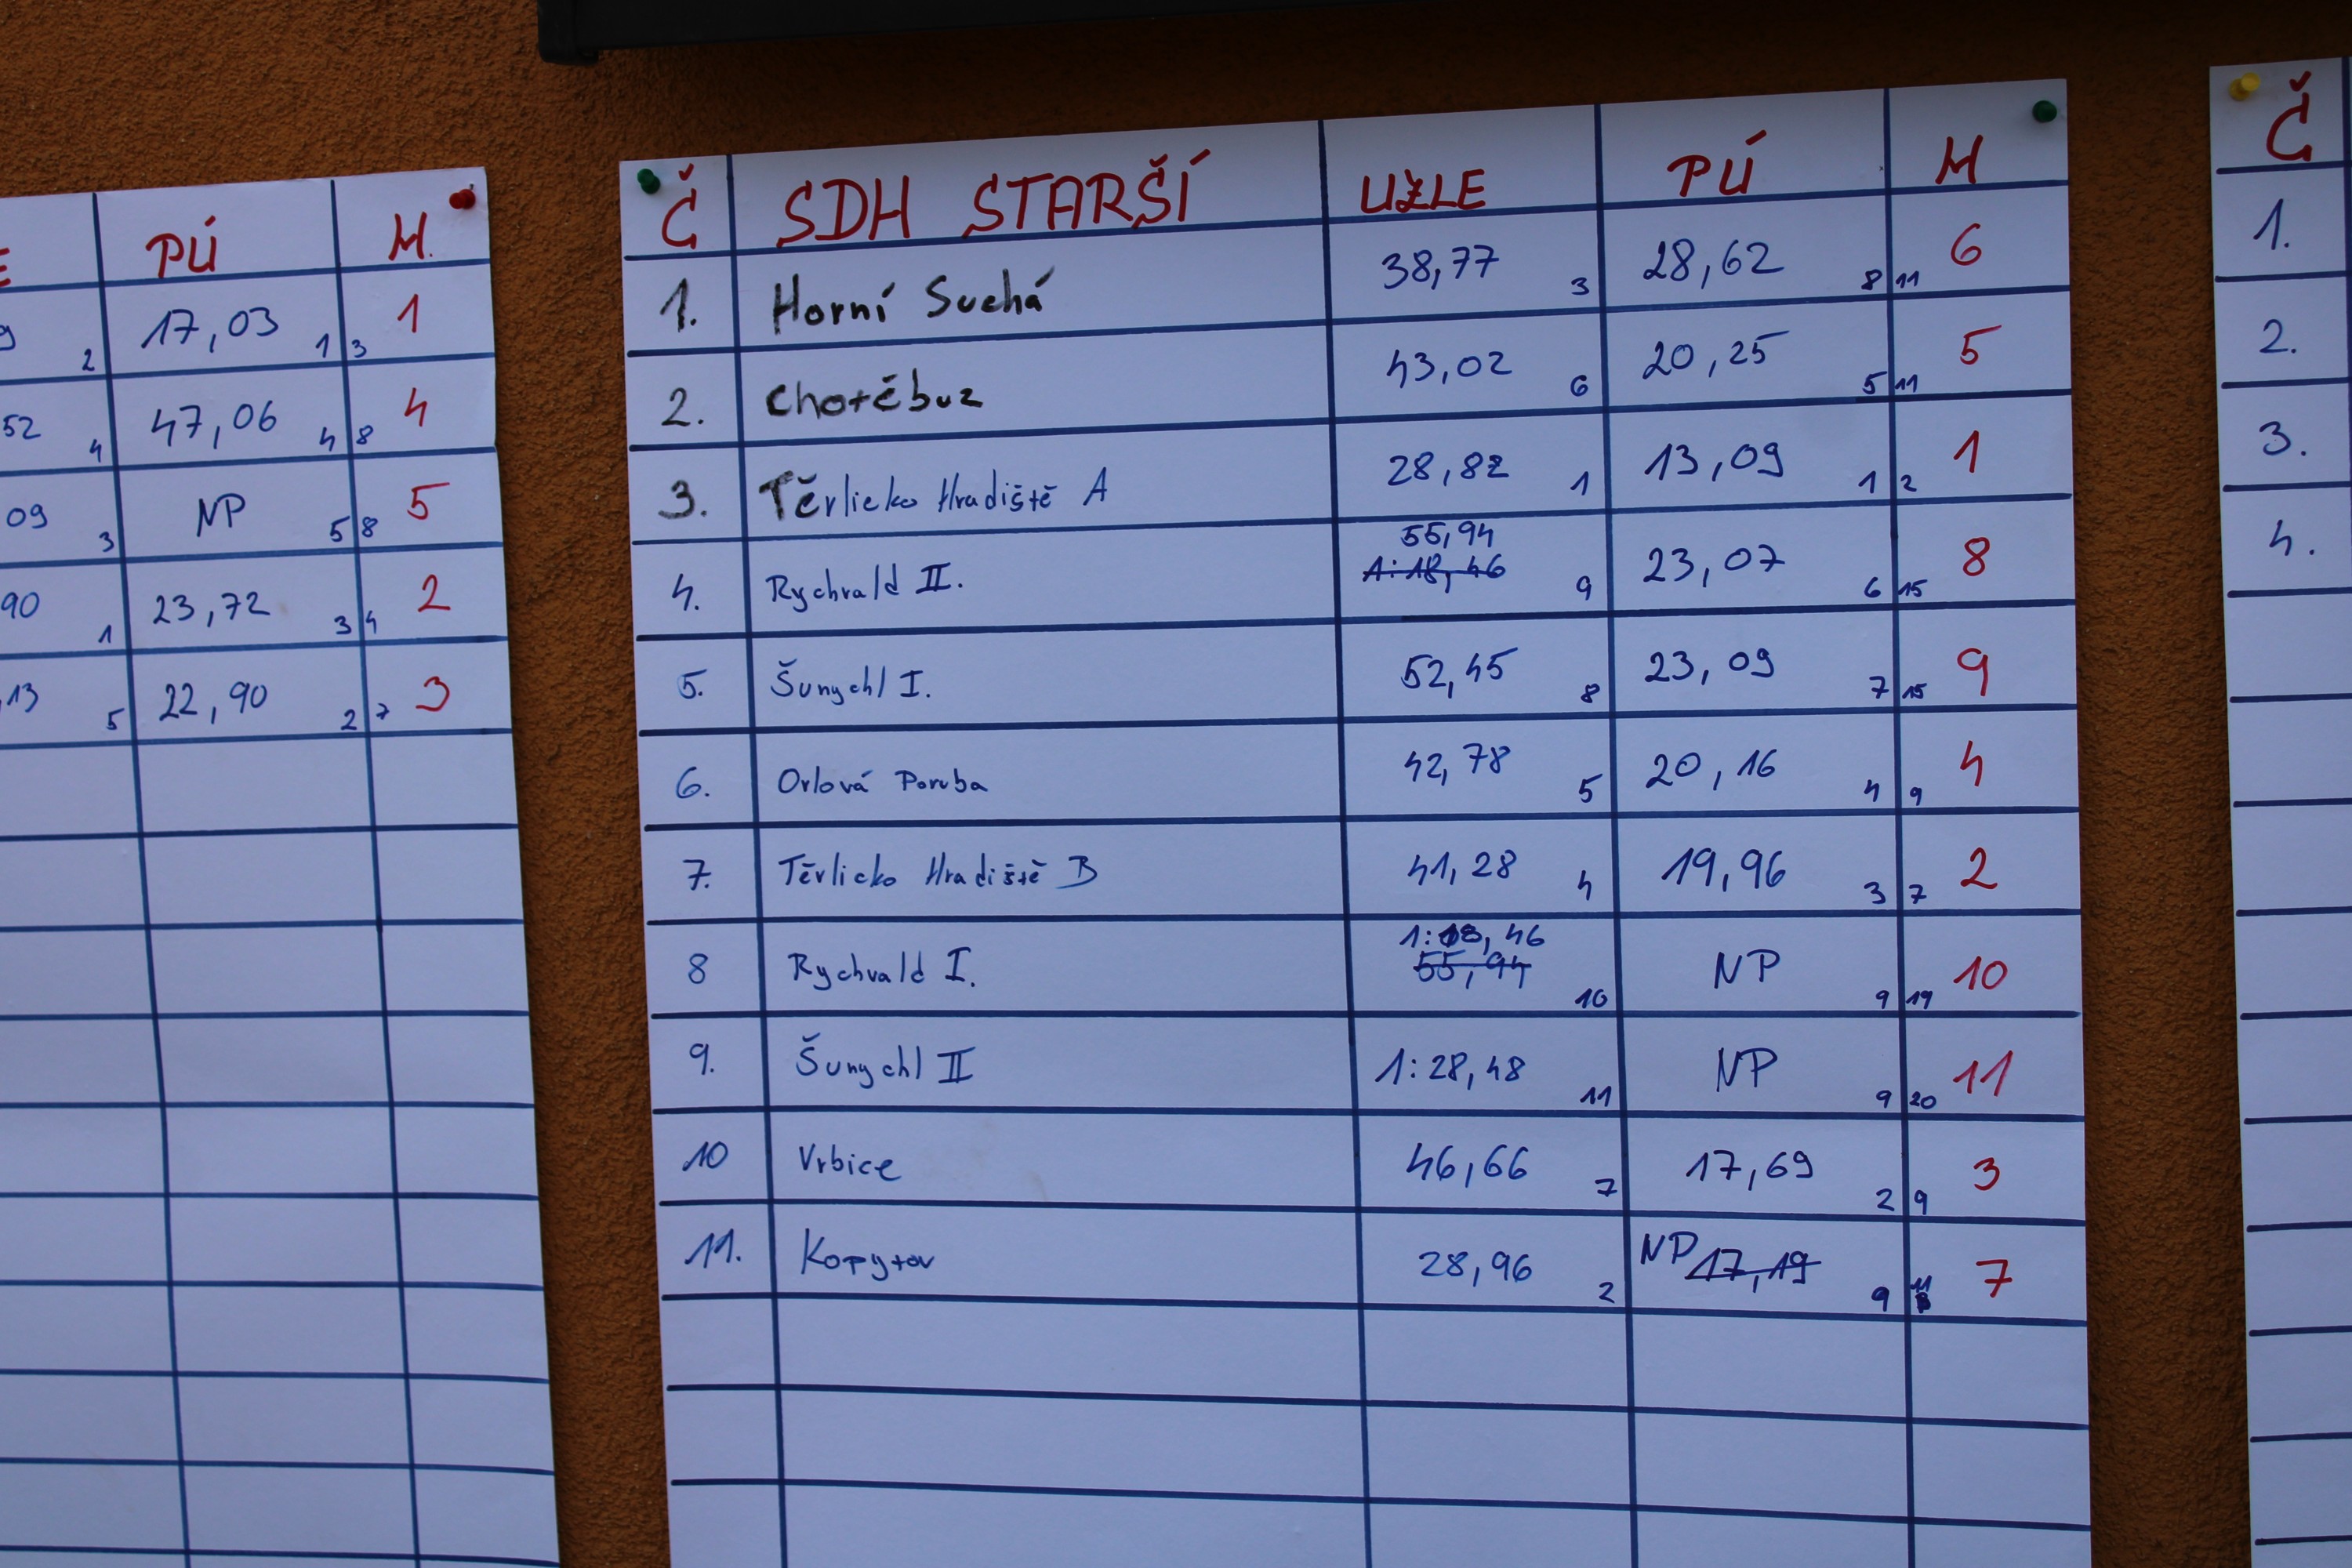 PÚ M.
9 2 17,03 1 3 1
52 4 47,06 4 8 4
09 3 NP 5 8 5
90 1 23,72 3 4 2
,13 5 22,90 2 7 3
Č SDH STARŠÍ UZLE PÚ M
1. Horní Suchá 38,77 3 28,62 8 11 6
2. Chotěbuz 43,02 6 20,25 5 11 5
3. Těrlicko Hradiště A 28,82 1 13,09 1 2 1
4. Rychvald II. 55,94 1:18,46 9 23,07 6 15 8
5. Šunychl I. 52,45 8 23,09 7 15 9
6. Orlová Poruba 42,78 5 20,16 4 9 4
7. Těrlicko Hradiště B 41,28 4 19,96 3 7 2
8 Rychvald I. 1:18,46 55,94 10 NP 9 19 10
9. Šunychl II 1:28,48 11 NP 9 20 11
10 Vrbice 46,66 7 17,69 2 9 3
11. Kopytov 28,96 2 NP 17,19 9 11 7
Č
1.
2.
3.
4.